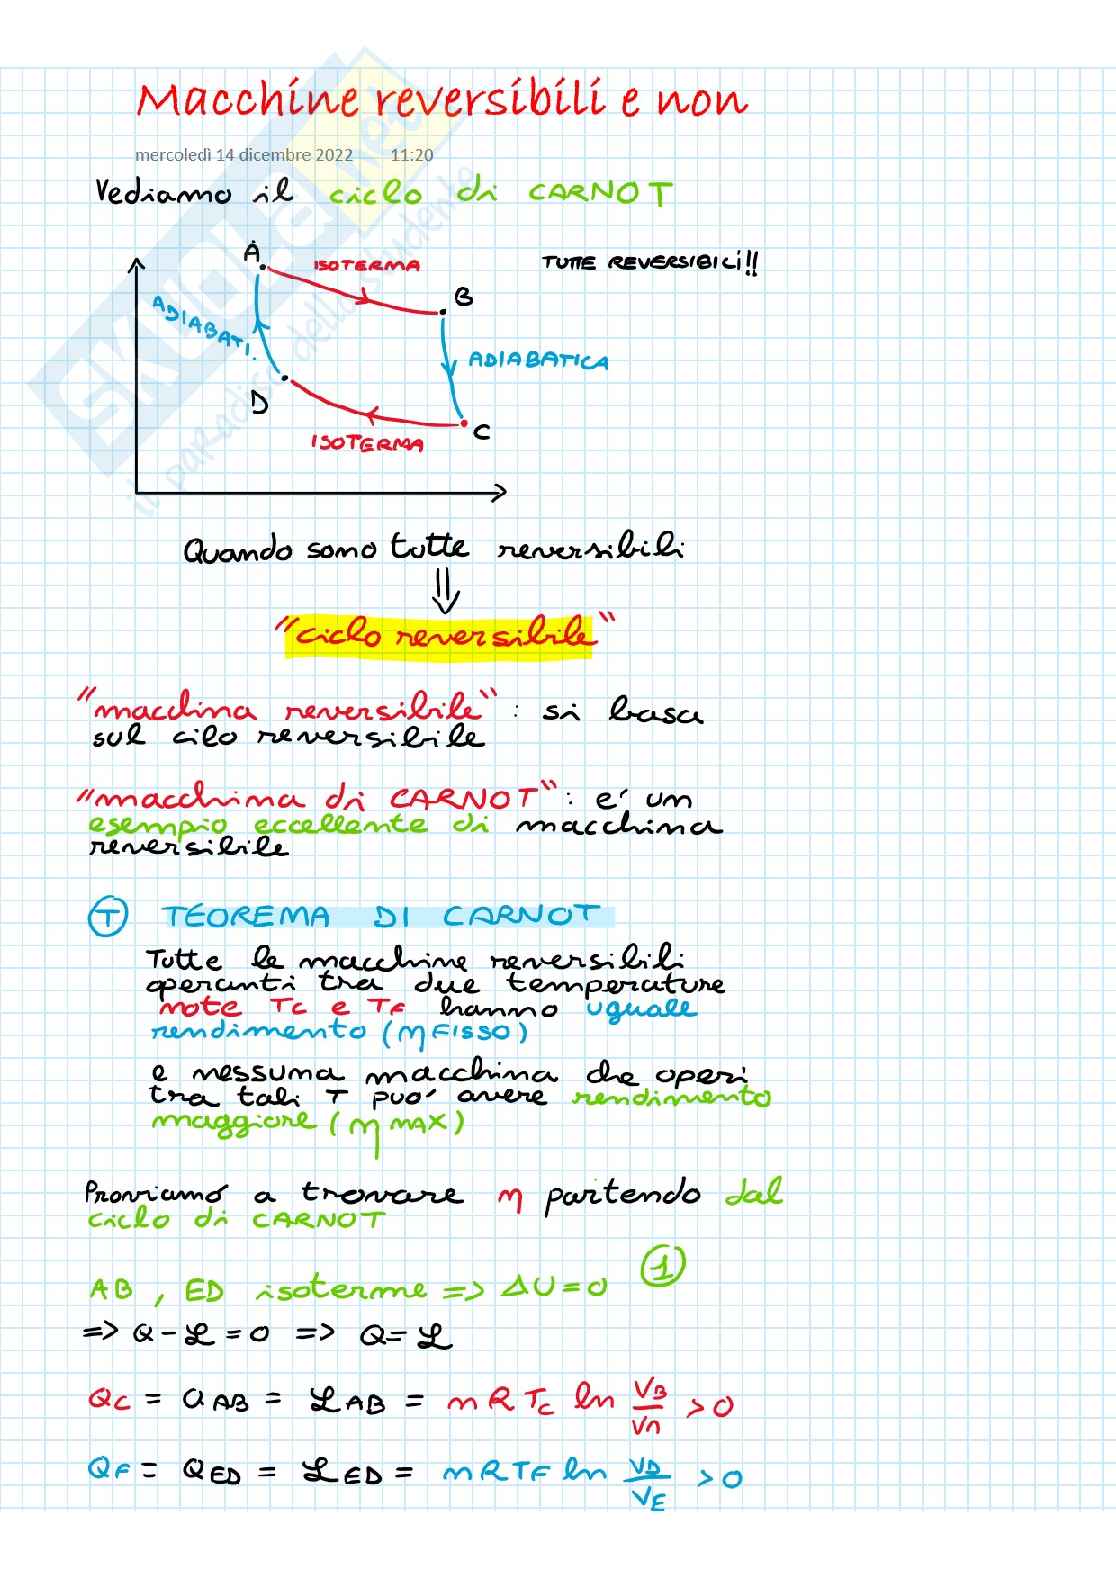 Macchine reversibili e non
mercoledì 14 dicembre 2022 11:20
Vediamo il ciclo di CARNOT
A
ISOTERMA
TUTTE REVERSIBILI!!
B
ADIABATI.
ADIABATICA
D
ISOTERMA
C
Quando sono tutte reversibili
⇓
"ciclo reversibile"
"macchina reversibile": si basa
sul cilo reversibile
"macchina di CARNOT": e' un
esempio eccellente di macchina
reversibile
T TEOREMA DI CARNOT
Tutte le macchine reversibili
operanti tra due temperature
note Tc e TF hanno uguale
rendimento (η FISSO)
e nessuna macchina che operi
tra tali T puo' avere rendimento
maggiore (η MAX)
Proviamo a trovare η partendo dal
ciclo di CARNOT
AB, ED isoterme => ΔU=0 1
=> Q-L=0 => Q=L
QC = QAB = LAB = nRTC ln VB/VA >0
QF = QED = LED = nRTF ln VD/VE >0
SKUOLA.net
il paradiso dello studente